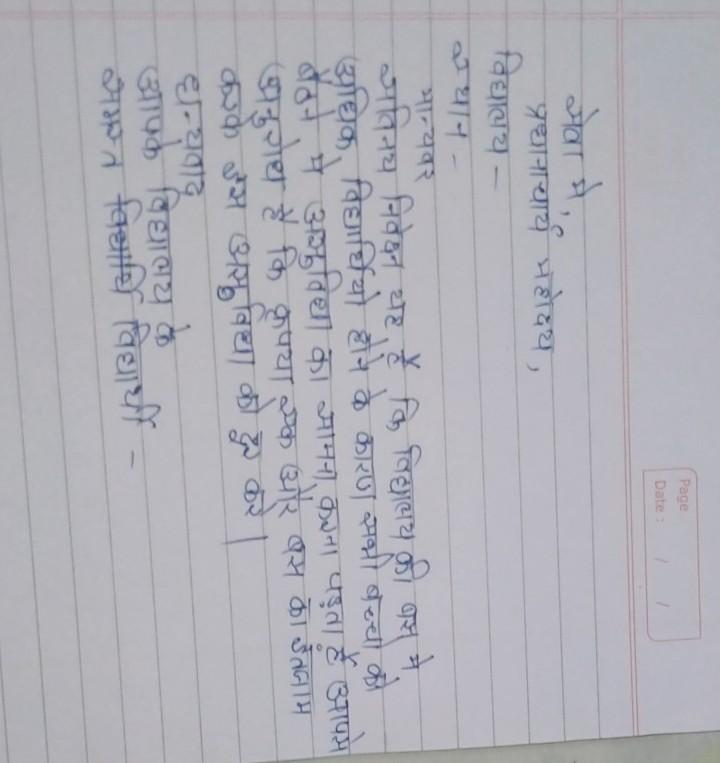 Page
Date : / /
सेवा में,
प्रधानाचार्य महोदय,
विद्यालय –
स्थान –
मान्यवर
सविनय निवेदन यह है कि विद्यालय की बस मे
अधिक विद्यार्थियो होने के कारण सभी बच्चो को
बैठने मे असुविधा का सामना करना पड़ता है आपसे
अनुरोध है कि कृपया एक ओर बस का इंतजाम
करके इस असुविधा को दूर करे।
धन्यवाद
आपके विद्यालय के
समस्त विद्यार्थि विद्यार्थी –